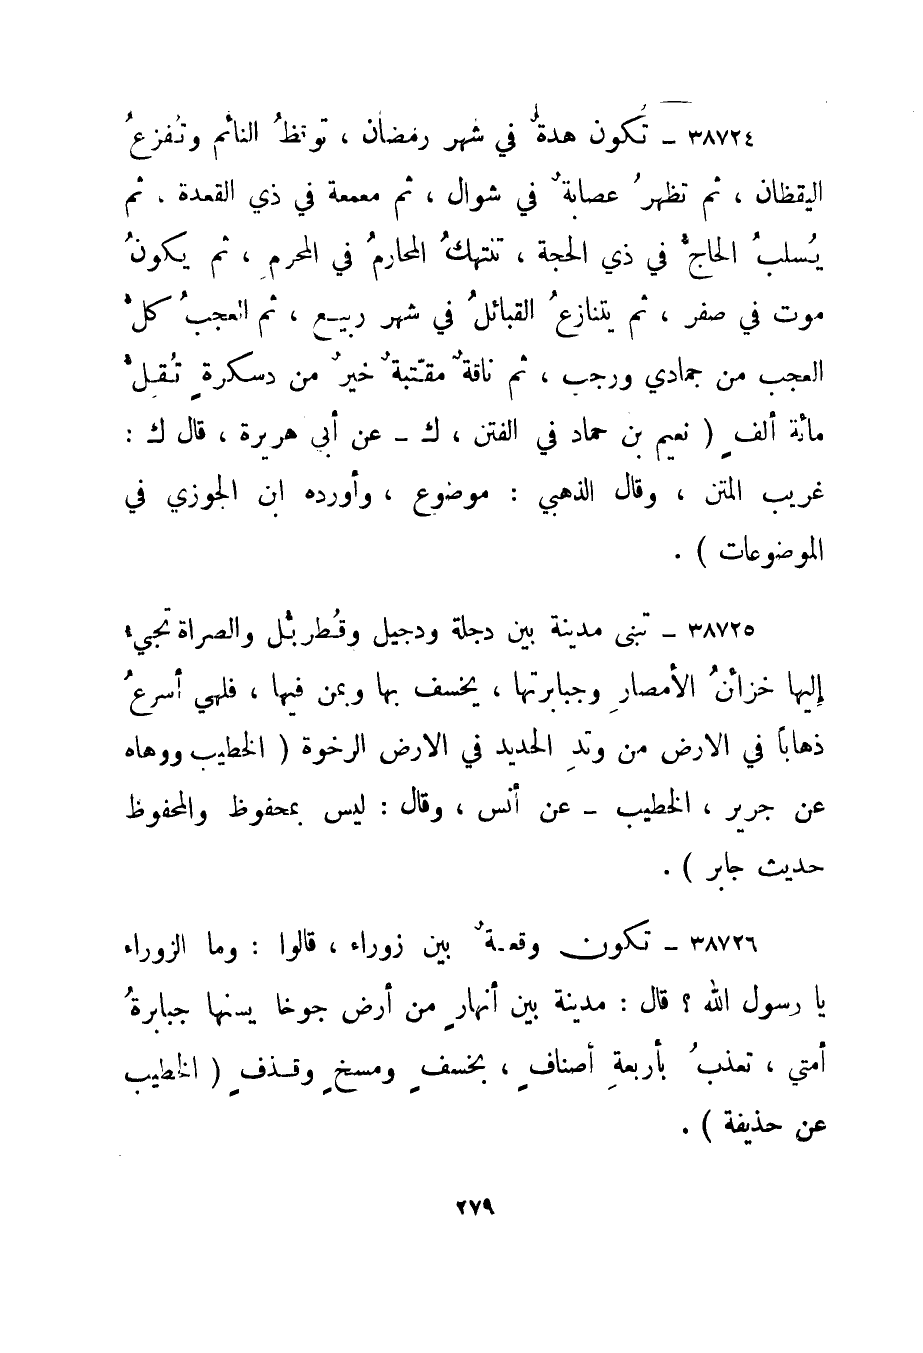 ٣٨٧٢٤ ـ تكون هدةٌ في شهر رمضان ، توقظُ النائم وتُفزعُ
اليقظان ، ثم تظهرُ عصابةٌ في شوال ، ثم معمعة في ذي القعدة . ثم
يُسلبُ الحاجُّ في ذي الحجة ، تنتهكُ المحارمُ في المحرم ، ثم يكونُ
موت في صفر ، ثم يتنازعُ القبائلُ في شهر ربيع ، ثم العجبُ كلُّ
العجب من جمادي ورجب ، ثم ناقةٌ مقتّبةٌ خيرٌ من دسكرةٍ تُقلُّ
مائة ألفٍ ( نعيم بن حماد في الفتن ، ك ـ عن أبي هريرة ، قال ك :
غريب المتن ، وقال الذهبي : موضوع ، وأورده ابن الجوزي في
الموضوعات ) .
٣٨٧٢٥ ـ تبنى مدينة بين دجلة ودجيل وقُطربُّل والصراة تجيء
إليها خزائنُ الأمصارِ وجبابرتها ، يخسف بها وبمن فيها ، فلهي أسرعُ
ذهاباً في الارض من وتدِ الحديد في الارض الرخوة ( الخطيب ووهاه
عن جرير ، الخطيب ـ عن أنس ، وقال : ليس بمحفوظ والمحفوظ
حديث جابر ) .
٣٨٧٢٦ ـ تكون وقعةٌ بين زوراء ، قالوا : وما الزوراء
يا رسول الله ؟ قال : مدينة بين أنهارٍ من أرض جوخا يسنها جبابرةُ
أمتي ، تعذبُ بأربعةِ أصنافٍ ، بخسفٍ ومسخٍ وقذفٍ ( الخطيب
عن حذيفة ) .
٢٧٩